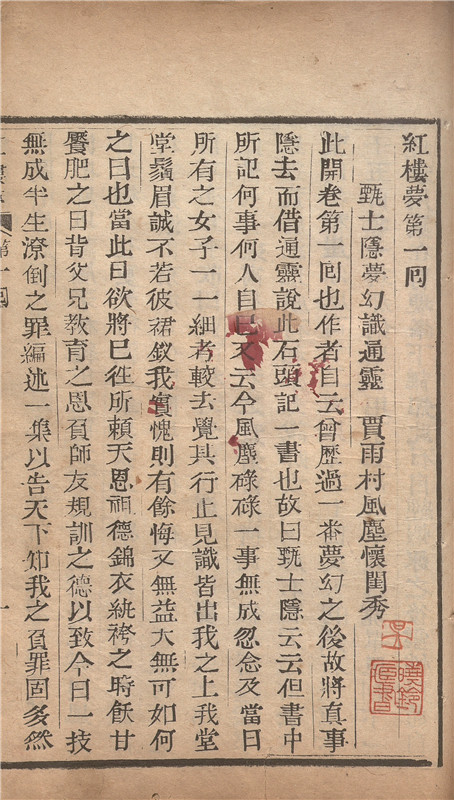 紅樓夢第一囘
甄士隱夢幻識通靈　賈雨村風塵懷閨秀
此開卷第一囘也作者自云曾歷過一番夢幻之後故將真事
隱去而借通靈說此石頭記一書也故曰甄士隱云云但書中
所記何事何人自己又云今風塵碌碌一事無成忽念及當日
所有之女子一一細考較去覺其行止見識皆出我之上我堂
堂鬚眉誠不若彼裙釵我實愧則有餘悔又無益大無可如何
之日也當此日欲將已徃所賴天恩祖德錦衣紈袴之時飫甘
饜肥之日背父兄敎育之恩負師友規訓之德以致今日一技
無成半生潦倒之罪編述一集以告天下知我之負罪固多然
第一囘